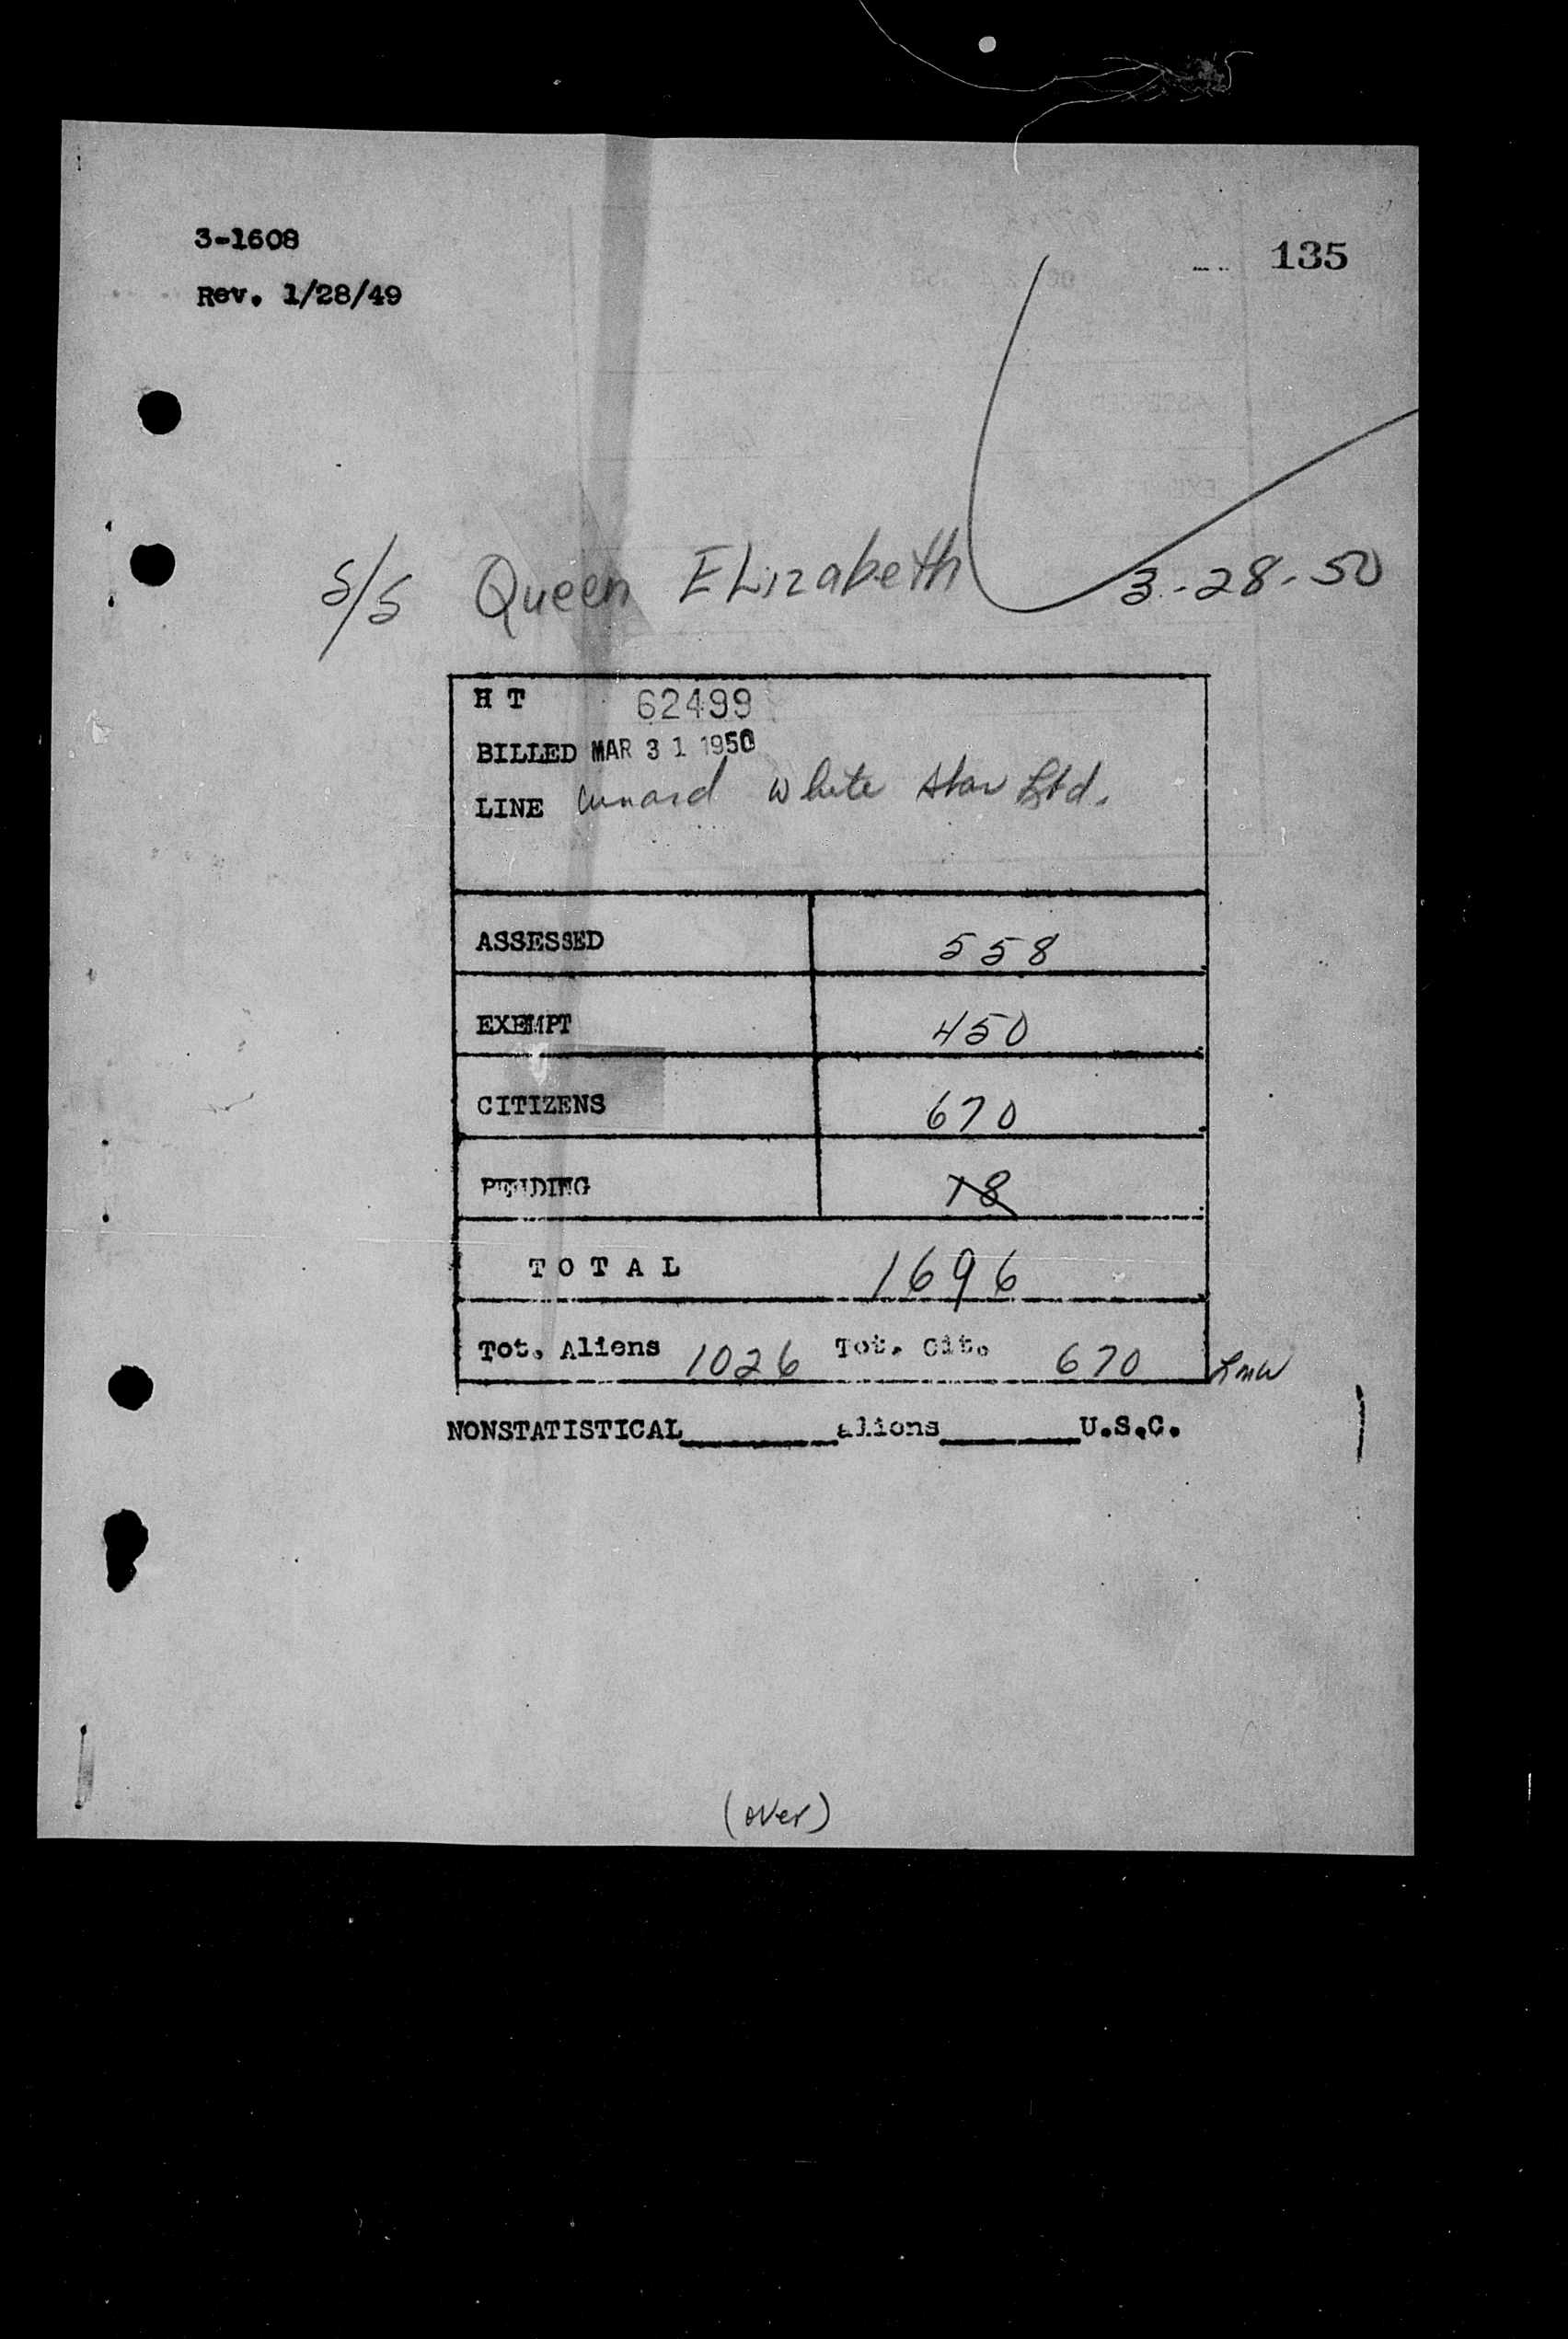 3-1608
135
Rev. 1/28/49
S/S Queen ELizabeth 3-28-50
H T 62499
BILLED MAR 31 1950
LINE Cunard White Star Ltd.
ASSESSED 558
EXEMPT 450
CITIZENS 670
PENDING 18
TOTAL 1696
Tot. Aliens 1026 Tot. Cit. 670 LMW
NONSTATISTICAL________aliens_______U.S.C.
(over)